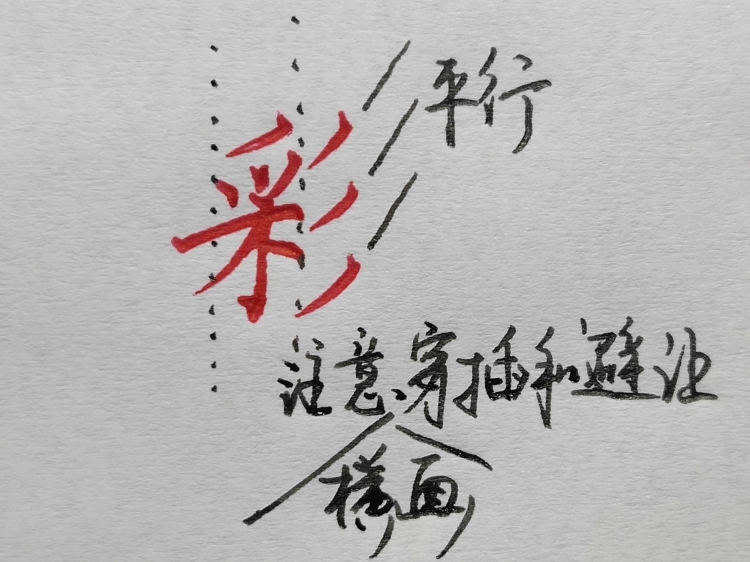 彩
平行
注意穿插和避让
(横画)